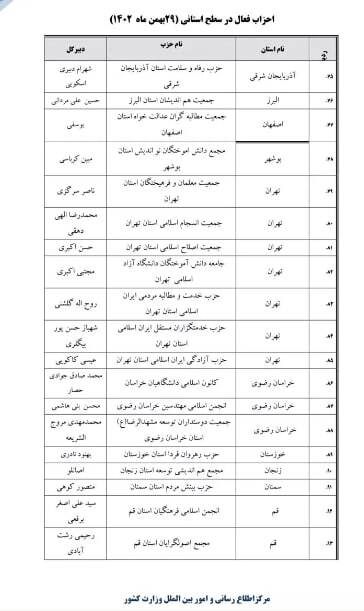 احزاب فعال در سطح استانی (۲۹بهمن ماه ۱۴۰۲)
ردیف نام استان نام حزب دبیرکل
۷۵. آذربایجان شرقی حزب رفاه و سلامت استان آذربایجان شهرام دبیری
شرقی اسکویی
۷۶. البرز جمعیت هم اندیشان استان البرز حسین علی مردانی
۷۷. اصفهان جمعیت مطالبه گران عدالت خواه استان یوسفی
اصفهان
۷۸. بوشهر مجمع دانش آموختگان نو اندیش استان مبین کرباسی
بوشهر
۷۹. تهران جمعیت معلمان و فرهیختگان استان ناصر سرگزی
تهران
۸۰. تهران جمعیت انسجام اسلامی استان تهران محمدرضا الهی
دهقی
۸۱. تهران جمعیت اصلاح اسلامی استان تهران حسن اکبری
۸۲. تهران جامعه دانش آموختگان دانشگاه آزاد مجتبی اکبری
اسلامی تهران
۸۳. تهران حزب خدمت و مطالبه مردمی ایران روح اله گلشنی
اسلامی استان تهران
۸۴. تهران حزب خدمتگزاران مستقل ایران اسلامی شهباز حسن پور
استان تهران بیگلری
۸۵. تهران حزب آزادگی ایران اسلامی استان تهران عیسی کاکویی
۸۶. خراسان رضوی کانون اسلامی دانشگاهیان خراسان محمد صادق جوادی
حصار
۸۷. خراسان رضوی انجمن اسلامی مهندسین خراسان رضوی محسن بنی هاشمی
۸۸. خراسان رضوی جمعیت دوستداران توسعه مشهدالرضا(ع) محمدمهدی مروج
استان خراسان رضوی الشریعه
۸۹. خوزستان حزب رهروان فردا استان خوزستان بهنود نادری
۹۰. زنجان مجمع هم اندیشی توسعه استان زنجان اصانلو
۹۱. سمنان حزب بینش مردم استان سمنان منصور کوهی
۹۲. قم انجمن اسلامی فرهنگیان استان قم سید علی اصغر
برقعی
۹۳. قم مجمع اصولگرایان استان قم رحیمی رشت
آبادی
مرکزاطلاع رسانی و امور بین الملل وزارت کشور